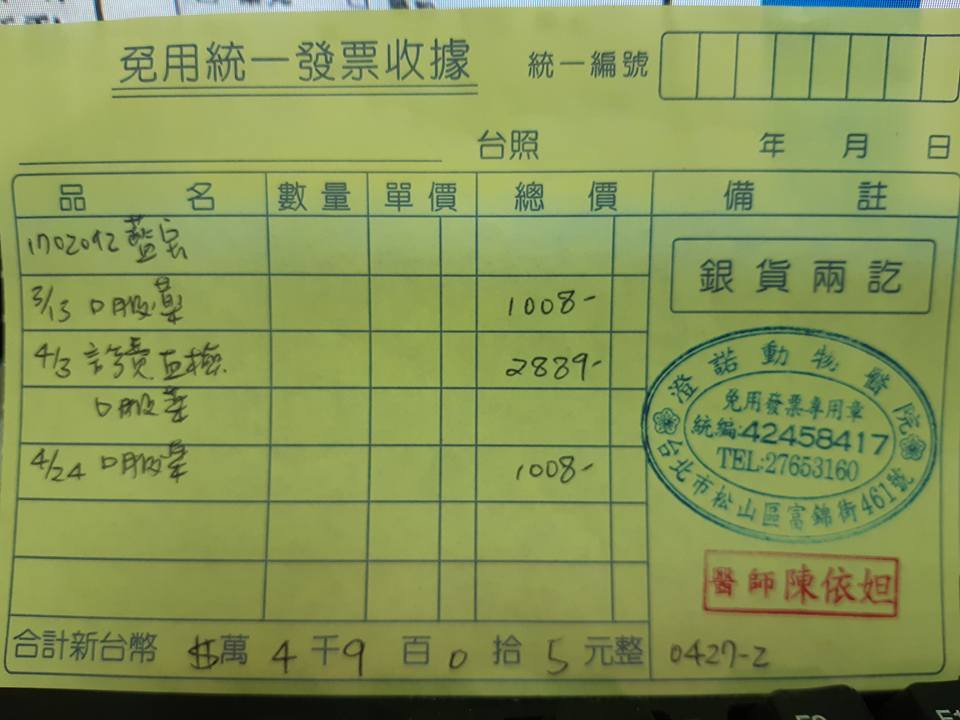 免用統一發票收據 統一編號
台照 年 月 日
品名 數量 單價 總價 備註
1702092 藍宝
銀貨兩訖
3/13 口服藥 1008-
4/3 診費 血檢 2889-
口服藥
4/24 口服藥 1008-
澄諾動物醫院
免用發票專用章
統編:42458417
TEL:27653160
台北市松山區富錦街461號
醫師陳依妲
合計新台幣 $萬4千9百0拾5元整
0427-2